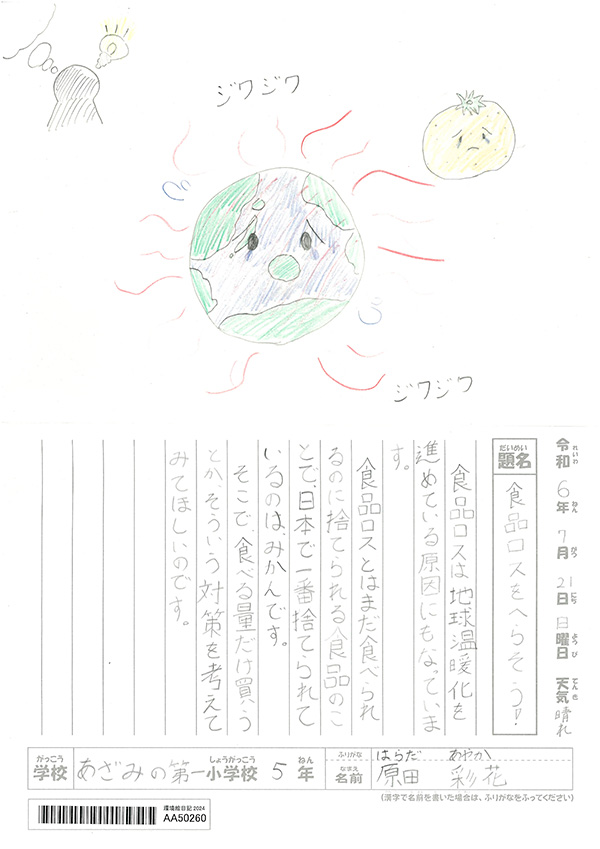 ジワジワ
ジワジワ
令和6年7月21日日曜日 天気晴れ
れいわ ねん がつ にち ようび てんき
だいめい
題名 食品ロスをへらそう!
食品ロスは地球温暖化を
進めている原因にもなっていま
す。
食品ロスとはまだ食べられ
るのに捨てられる食品のこ
とで、日本で一番捨てられて
いるのは、みかんです。
そこで、食べる量だけ買う
とか、そういう対策を考えて
みてほしいのです。
がっこう しょうがっこう ねん
学校 あざみの第一小学校 5年
ふりがな はらだ あやか
なまえ
名前 原田 彩花
(漢字で名前を書いた場合は、ふりがなをふってください)
環境絵日記2024
AA50260